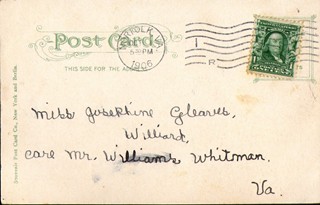 Post Cards
THIS SIDE FOR THE
NORFOLK, VA.
5-PM
1906
1
R
Miss Josephine Cleaves,
Williard,
care Mr. Williams Whitman.
Va.
Souvenir Post Card Co., New York and Berlin.